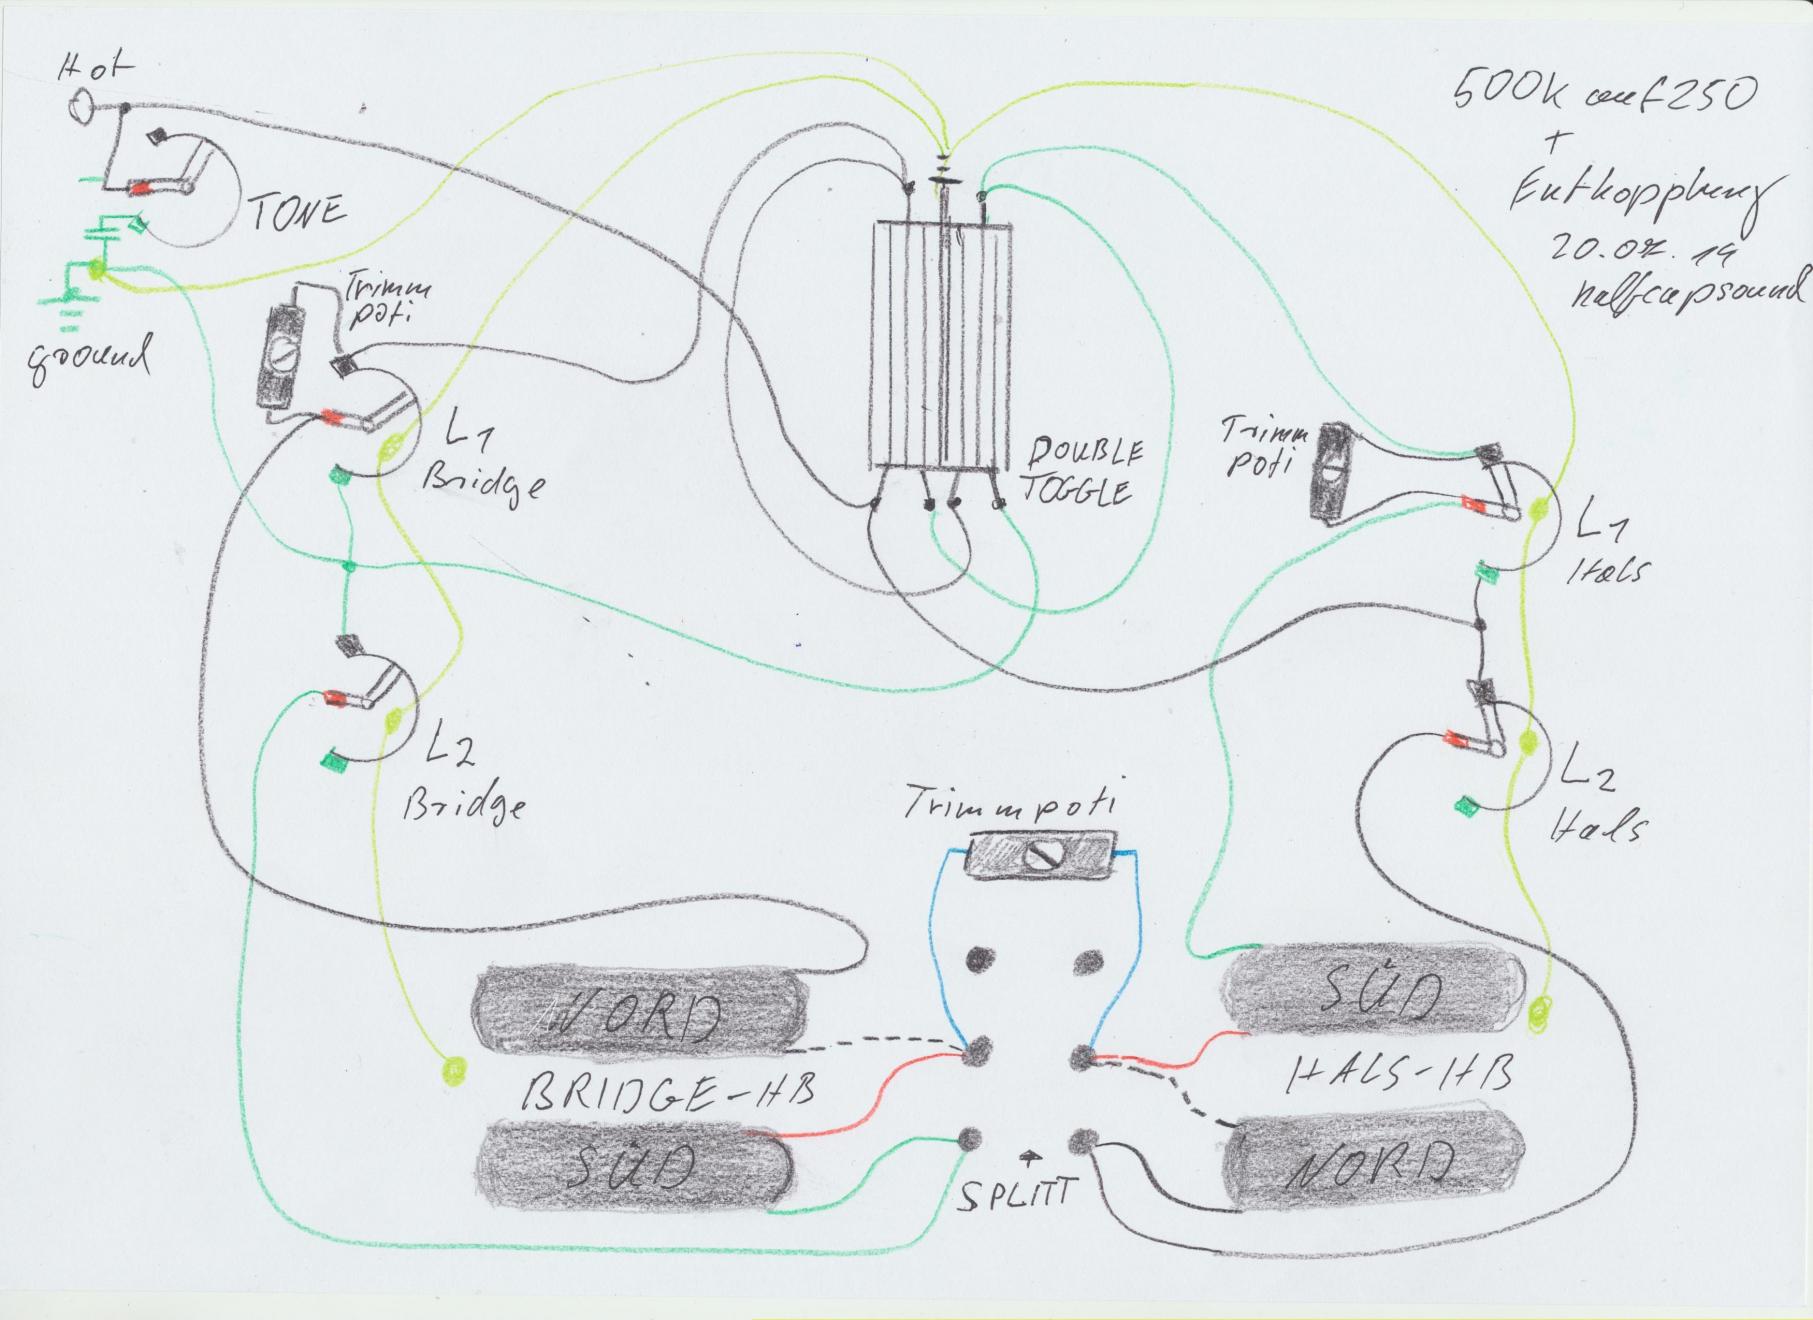 Hot
TONE
ground
Trimm
poti
L1
Bridge
L2
Bridge
DOUBLE
TOGGLE
500k auf 250
+
Entkopplung
halfcapsound
Trimm
poti
L1
Hals
L2
Hals
Trimmpoti
NORD
BRIDGE-HB
SÜD
SPLITT
SÜD
HALS-HB
NORD